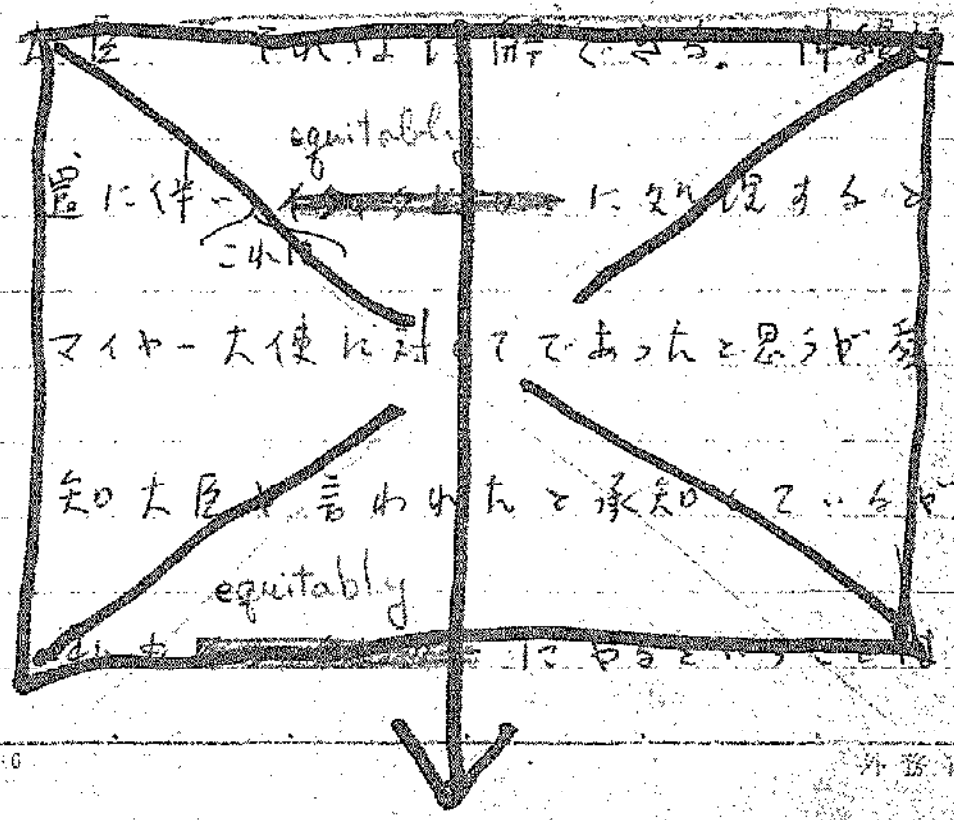 大臣 それは了解できる。
equitably
置に伴い に処理すると
これは
マイヤー大使に対してであったと思うが愛
知大臣が言われたと承知しているが
equitably
にやるということは
外務